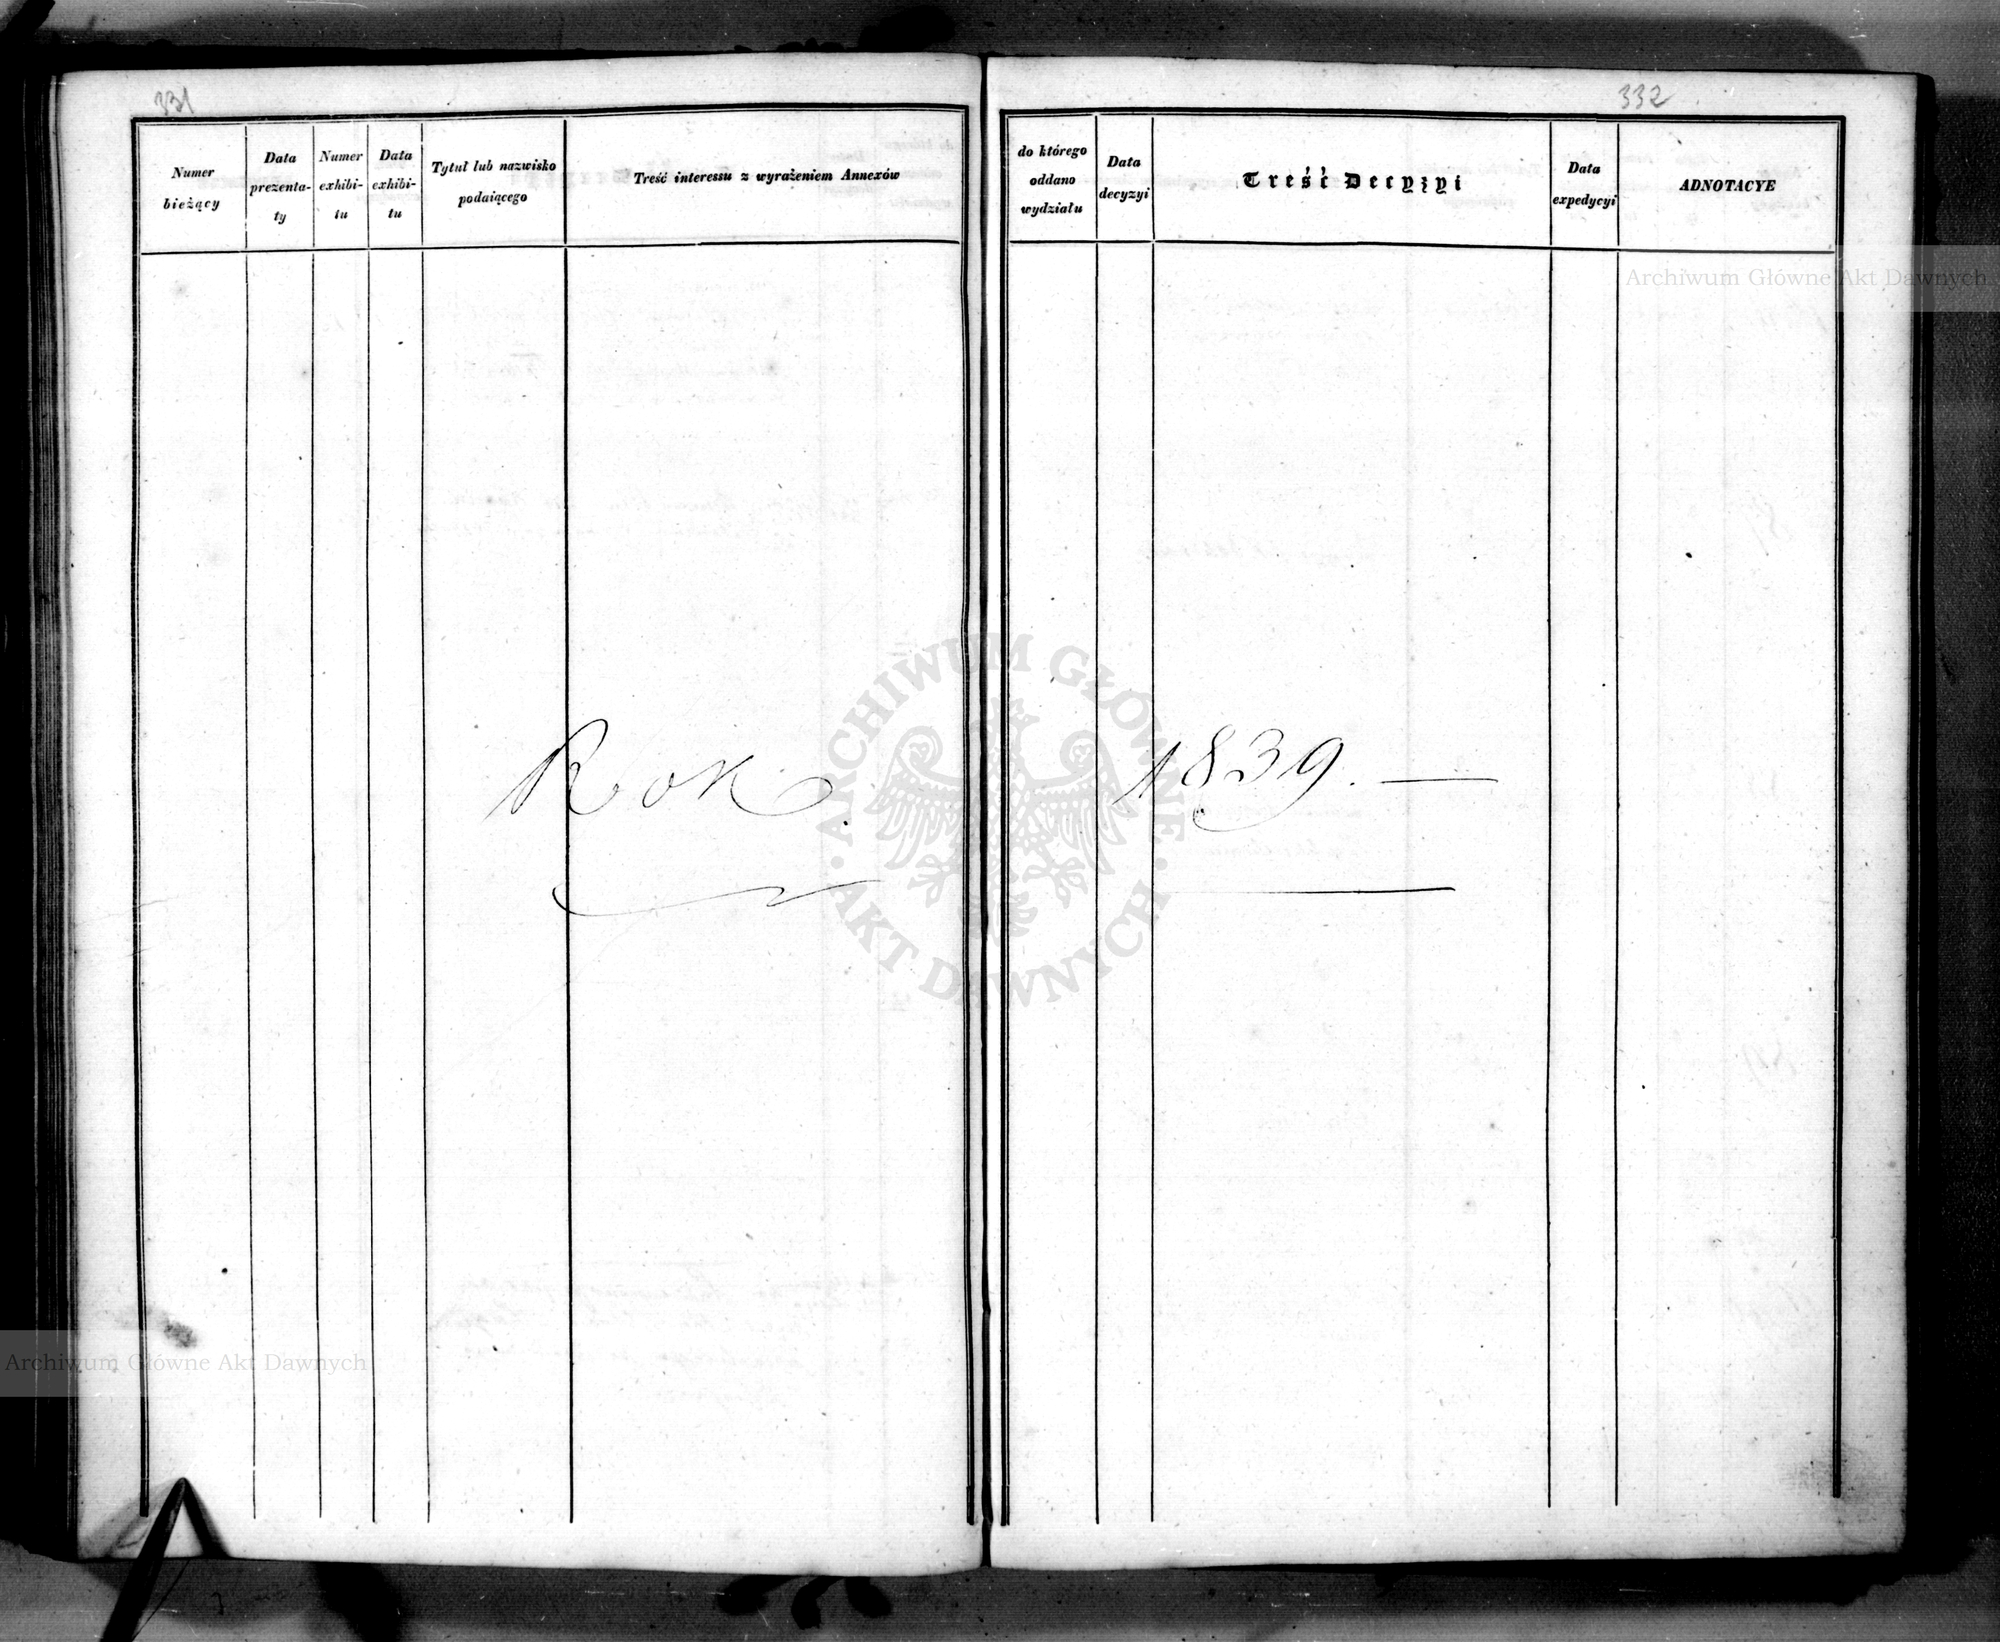 331
Numer
bieżący
Data
prezenta-
ty
Numer
exhibi-
tu
Data
exhibi-
tu
Tytuł lub nazwisko
podaiącego
Treść interessu z wyrażeniem Annexów
Rok.
332
do którego
oddano
wydziału
Data
decyzyi
Treść Decyzyi
Data
expedycyi
ADNOTACYE
1839. —
Archiwum Główne Akt Dawnych
ARCHIWUM GŁÓWNE · AKT DAWNYCH ·
Archiwum Główne Akt Dawnych